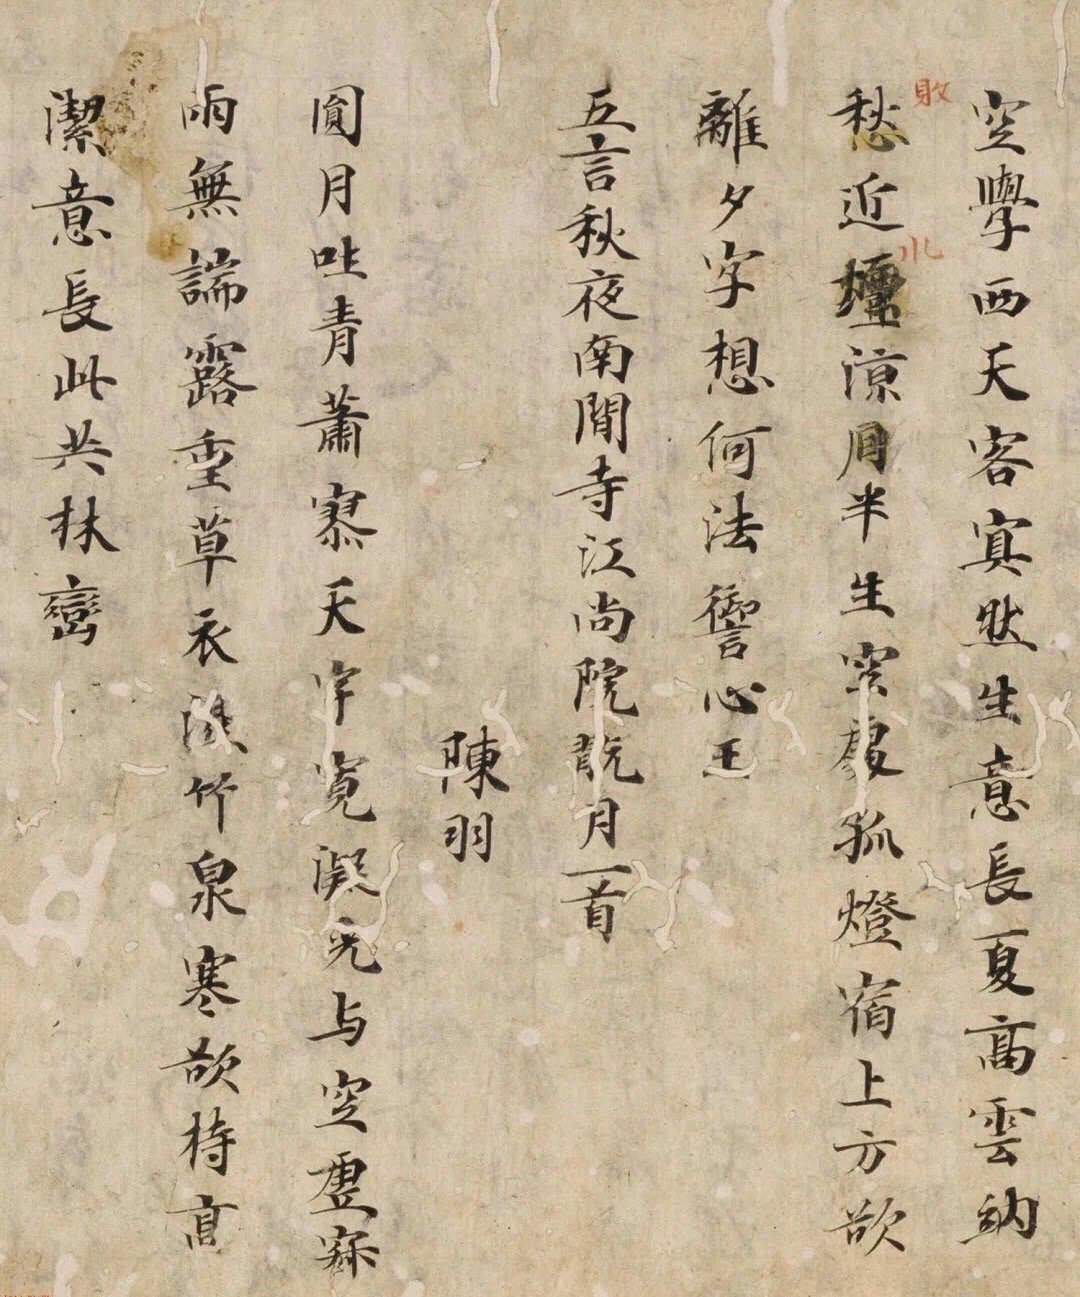 空學西天客寘然生意長夏高雲納
敗
愁近壇涼月半生空孤燈宿上方欲
水
離夕字想何法心王
五言秋夜南閒寺江尚院翫月一首
陳羽
圓月吐青蕭寥天宇寬凝光与空虛寂
両無端露重草衣濕竹泉寒欲持高
潔意長此共林巒